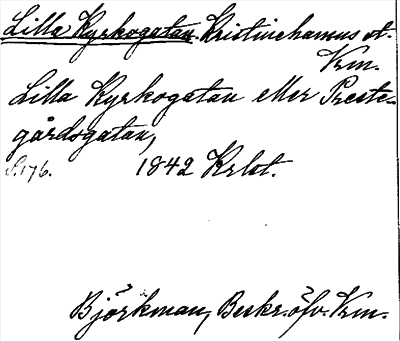 Lilla Kyrkogatan Kristinehamns st.
Vrm.
Lilla Kyrkogatan eller Preste-
gårdsgatan,
S.176. 1842 Krlot.
Björkman, Beskr. öfv. Vrm.